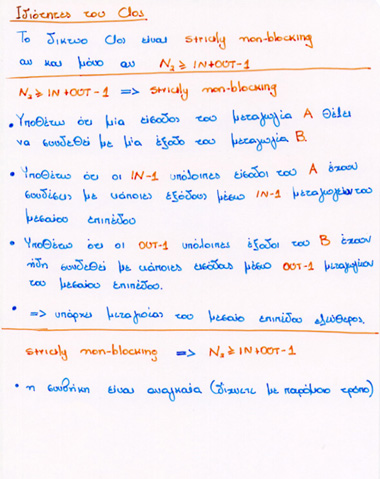 Ιδιότητες του Clos.
Το δίκτυο Clos είναι strictly non-blocking
αν και μόνο αν N₂ ≥ IN+OUT-1
N₂ ≥ IN+OUT-1 => strictly non-blocking
• Υποθέτω ότι μία είσοδος του μεταγωγέα A θέλει
να συνδεθεί με μία έξοδο του μεταγωγέα B.
• Υποθέτω ότι οι IN-1 υπόλοιπες είσοδοι του A έχουν
συνδέσεις με κάποιες εξόδους μέσω IN-1 μεταγωγέων του
μεσαίου επιπέδου
• Υποθέτω ότι οι OUT-1 υπόλοιπες έξοδοι του B έχουν
ήδη συνδεθεί με κάποιες εισόδους μέσω OUT-1 μεταγωγέων
του μεσαίου επιπέδου.
• => υπάρχει μεταγωγέας του μεσαίο επιπέδου ελεύθερος.
strictly non-blocking => N₂ ≥ IN+OUT-1
• η συνθήκη είναι αναγκαία (δείχνετε με παρόμοιο τρόπο)